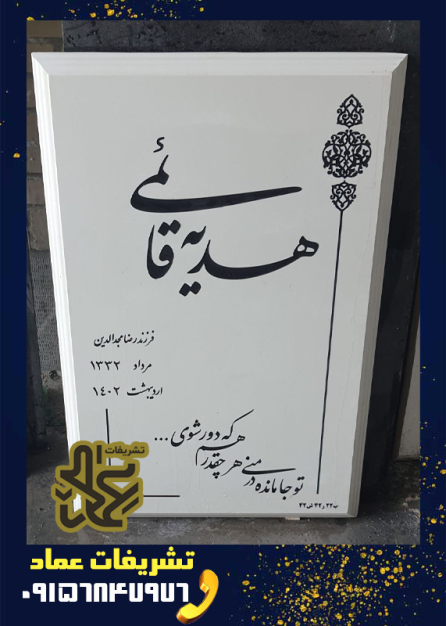 هدیه قائمی
فرزند رضا مجدالدین
مرداد ۱۳۳۲
اردیبهشت ۱۴۰۲
هر چقدر هم که دور شوی ...
تو جا مانده در منی
تشریفات
عماد
تشریفات عماد
۰۹۱۵۶۸۴۷۹۷۶